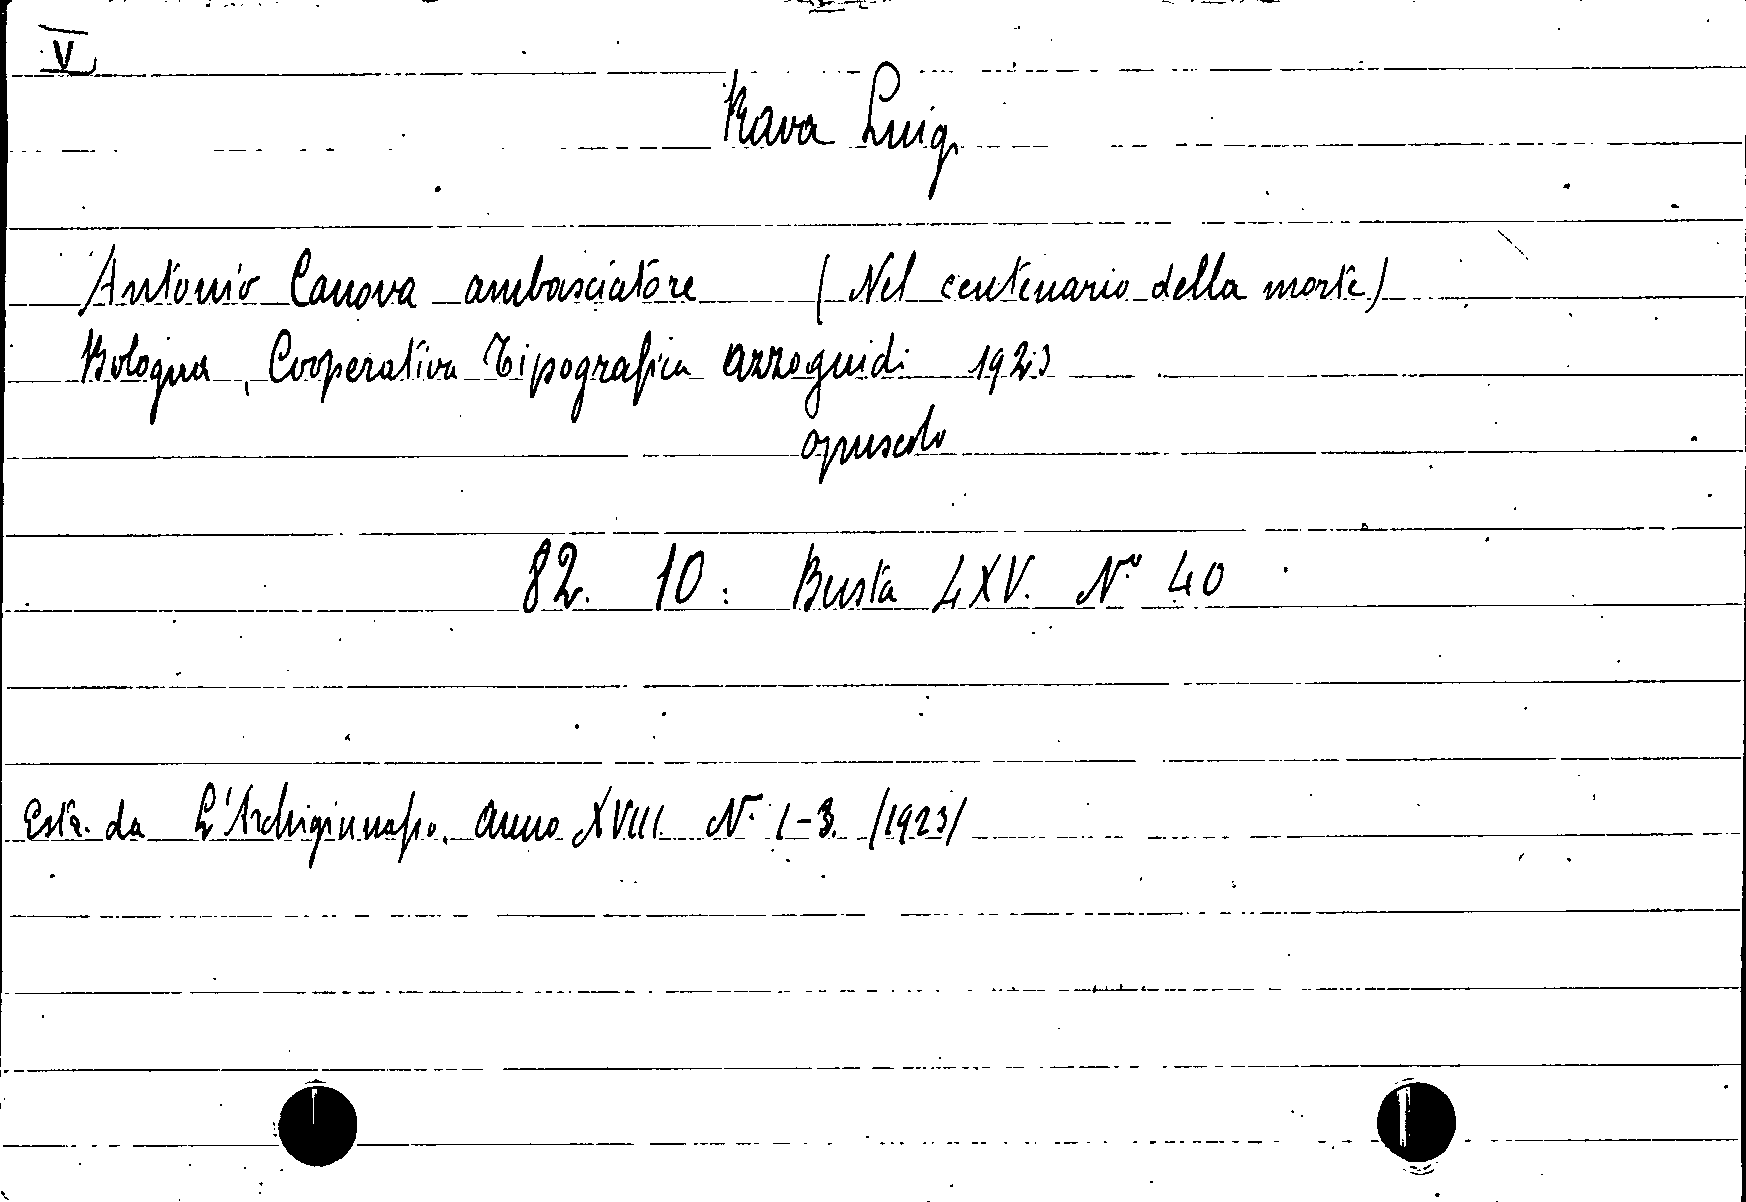 V
Rava Luigi
Antonio Canova ambasciatore (Nel centenario della morte)
Bologna, Cooperativa Tipografica Azzoguidi 1923
opuscolo
82. 10. Busta LXV. N.º 40
Estr. da L'Archiginnasio. Anno XVIII N. 1-3. /1923/